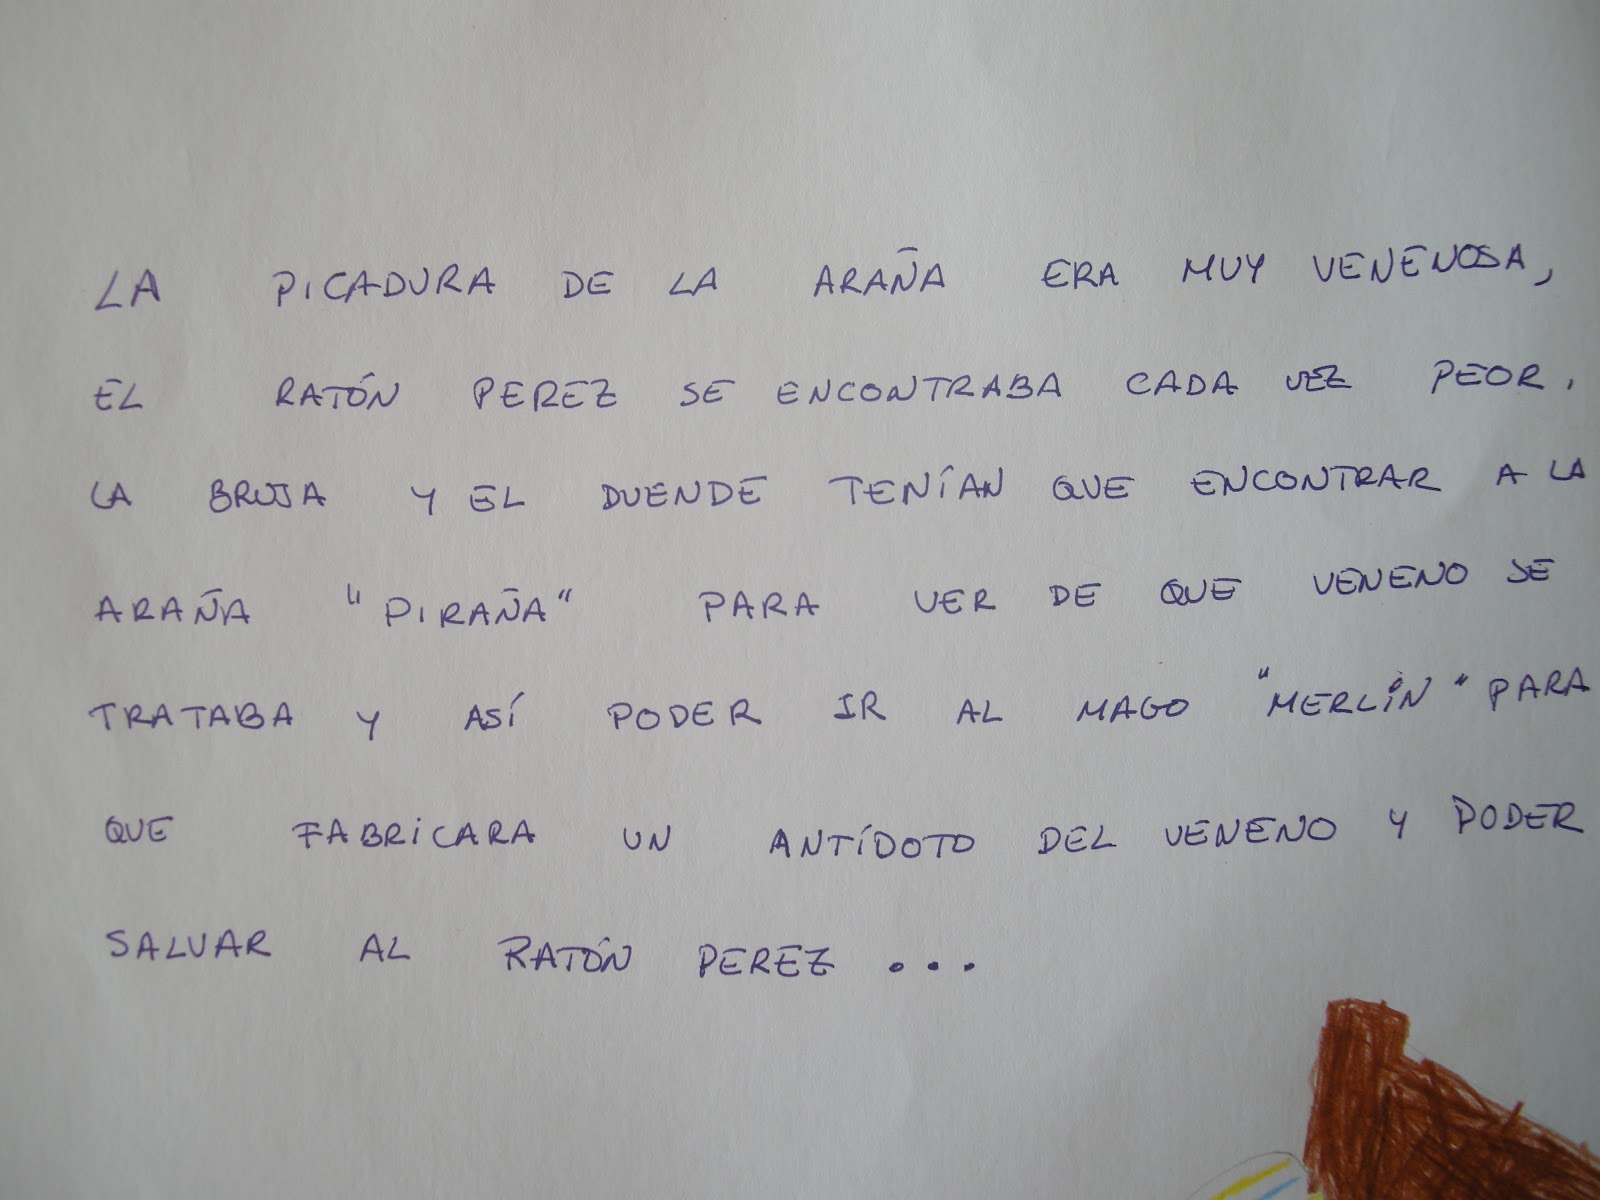 LA PICADURA DE LA ARAÑA ERA MUY VENENOSA,
EL RATÓN PEREZ SE ENCONTRABA CADA VEZ PEOR.
LA BRUJA Y EL DUENDE TENÍAN QUE ENCONTRAR A LA
ARAÑA "PIRAÑA" PARA VER DE QUE VENENO SE
TRATABA Y ASÍ PODER IR AL MAGO "MERLÍN" PARA
QUE FABRICARA UN ANTÍDOTO DEL VENENO Y PODER
SALVAR AL RATÓN PEREZ ...